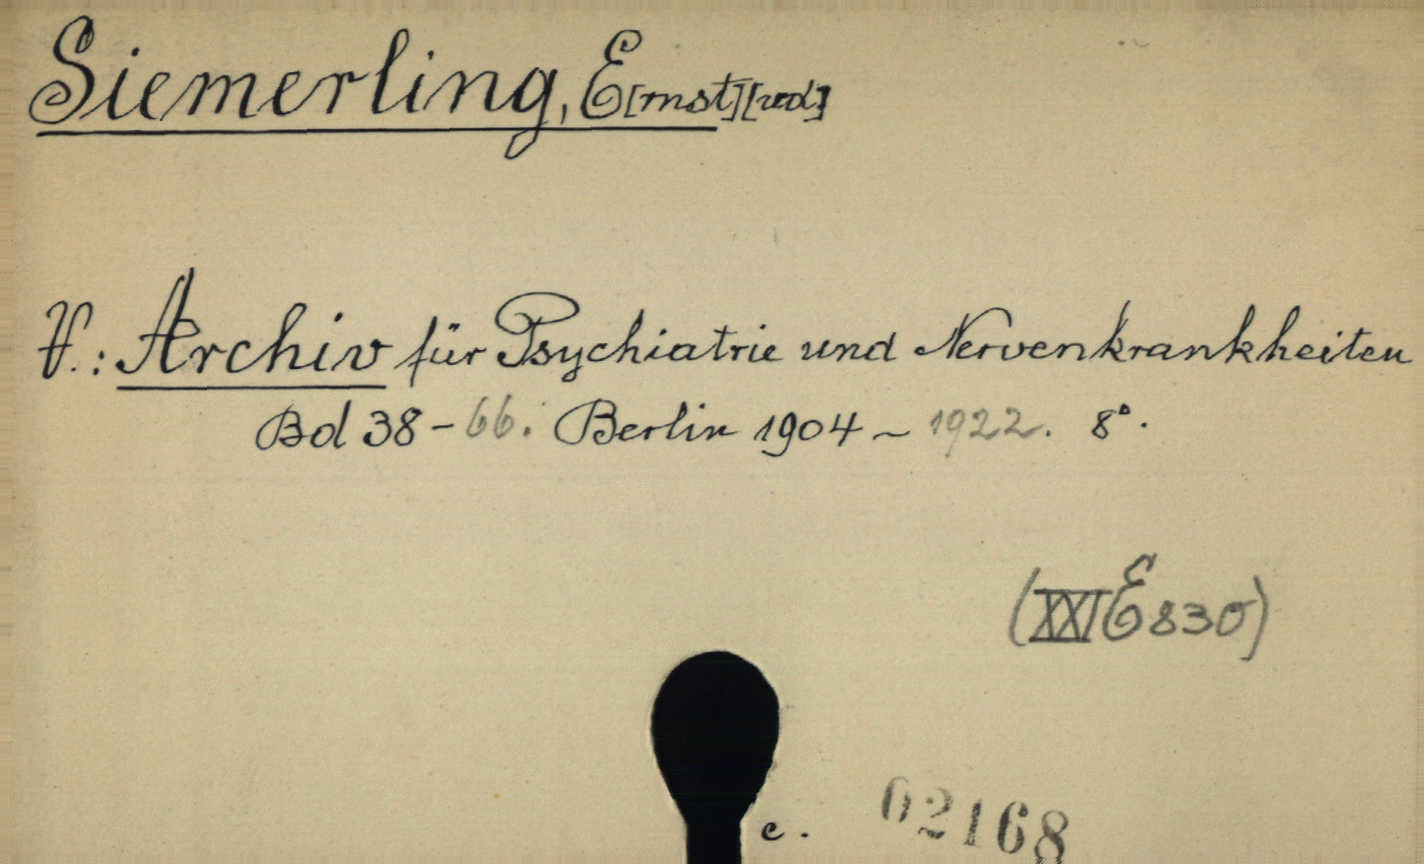 Siemerling, E[rnst][red.]
V.: Archiv für Psychiatrie und Nervenkrankheiten
Bd 38-66. Berlin 1904 - 1922. 8°.
(XXI E 830)
c.
02168